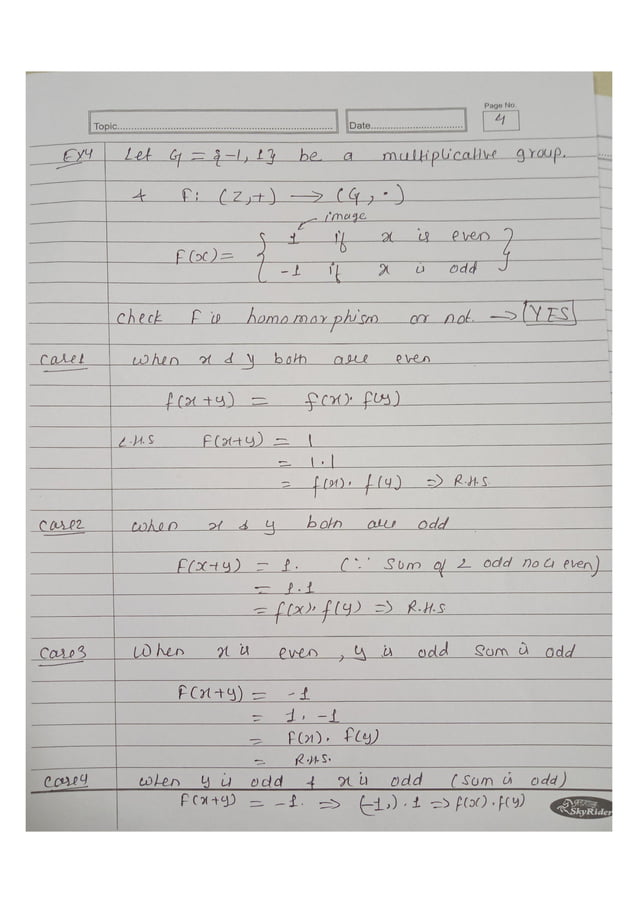 Page No.
4
Topic
Date
EX4 Let G = {-1, 1} be a multiplicative group.
& F: (Z,+) → (G, ·)
image
F(x) = { 1 if x is even
-1 if x is odd }
check F is homomorphism or not. → YES
Case1 when x & y both are even
f(x+y) = f(x). f(y)
L.H.S F(x+y) = 1
= 1.1
= f(x). f(y) ⇒ R.H.S
Case2 when x & y both are odd
F(x+y) = 1. (∵ Sum of 2 odd no is even)
= 1.1
= f(x). f(y) ⇒ R.H.S
Case3 When x is even, y is odd sum is odd
F(x+y) = -1
= 1. -1
= F(x). f(y)
= R.H.S.
Case4 when y is odd & x is odd (sum is odd)
F(x+y) = -1. ⇒ (-1,).1 ⇒ f(x).f(y)
SkyRider